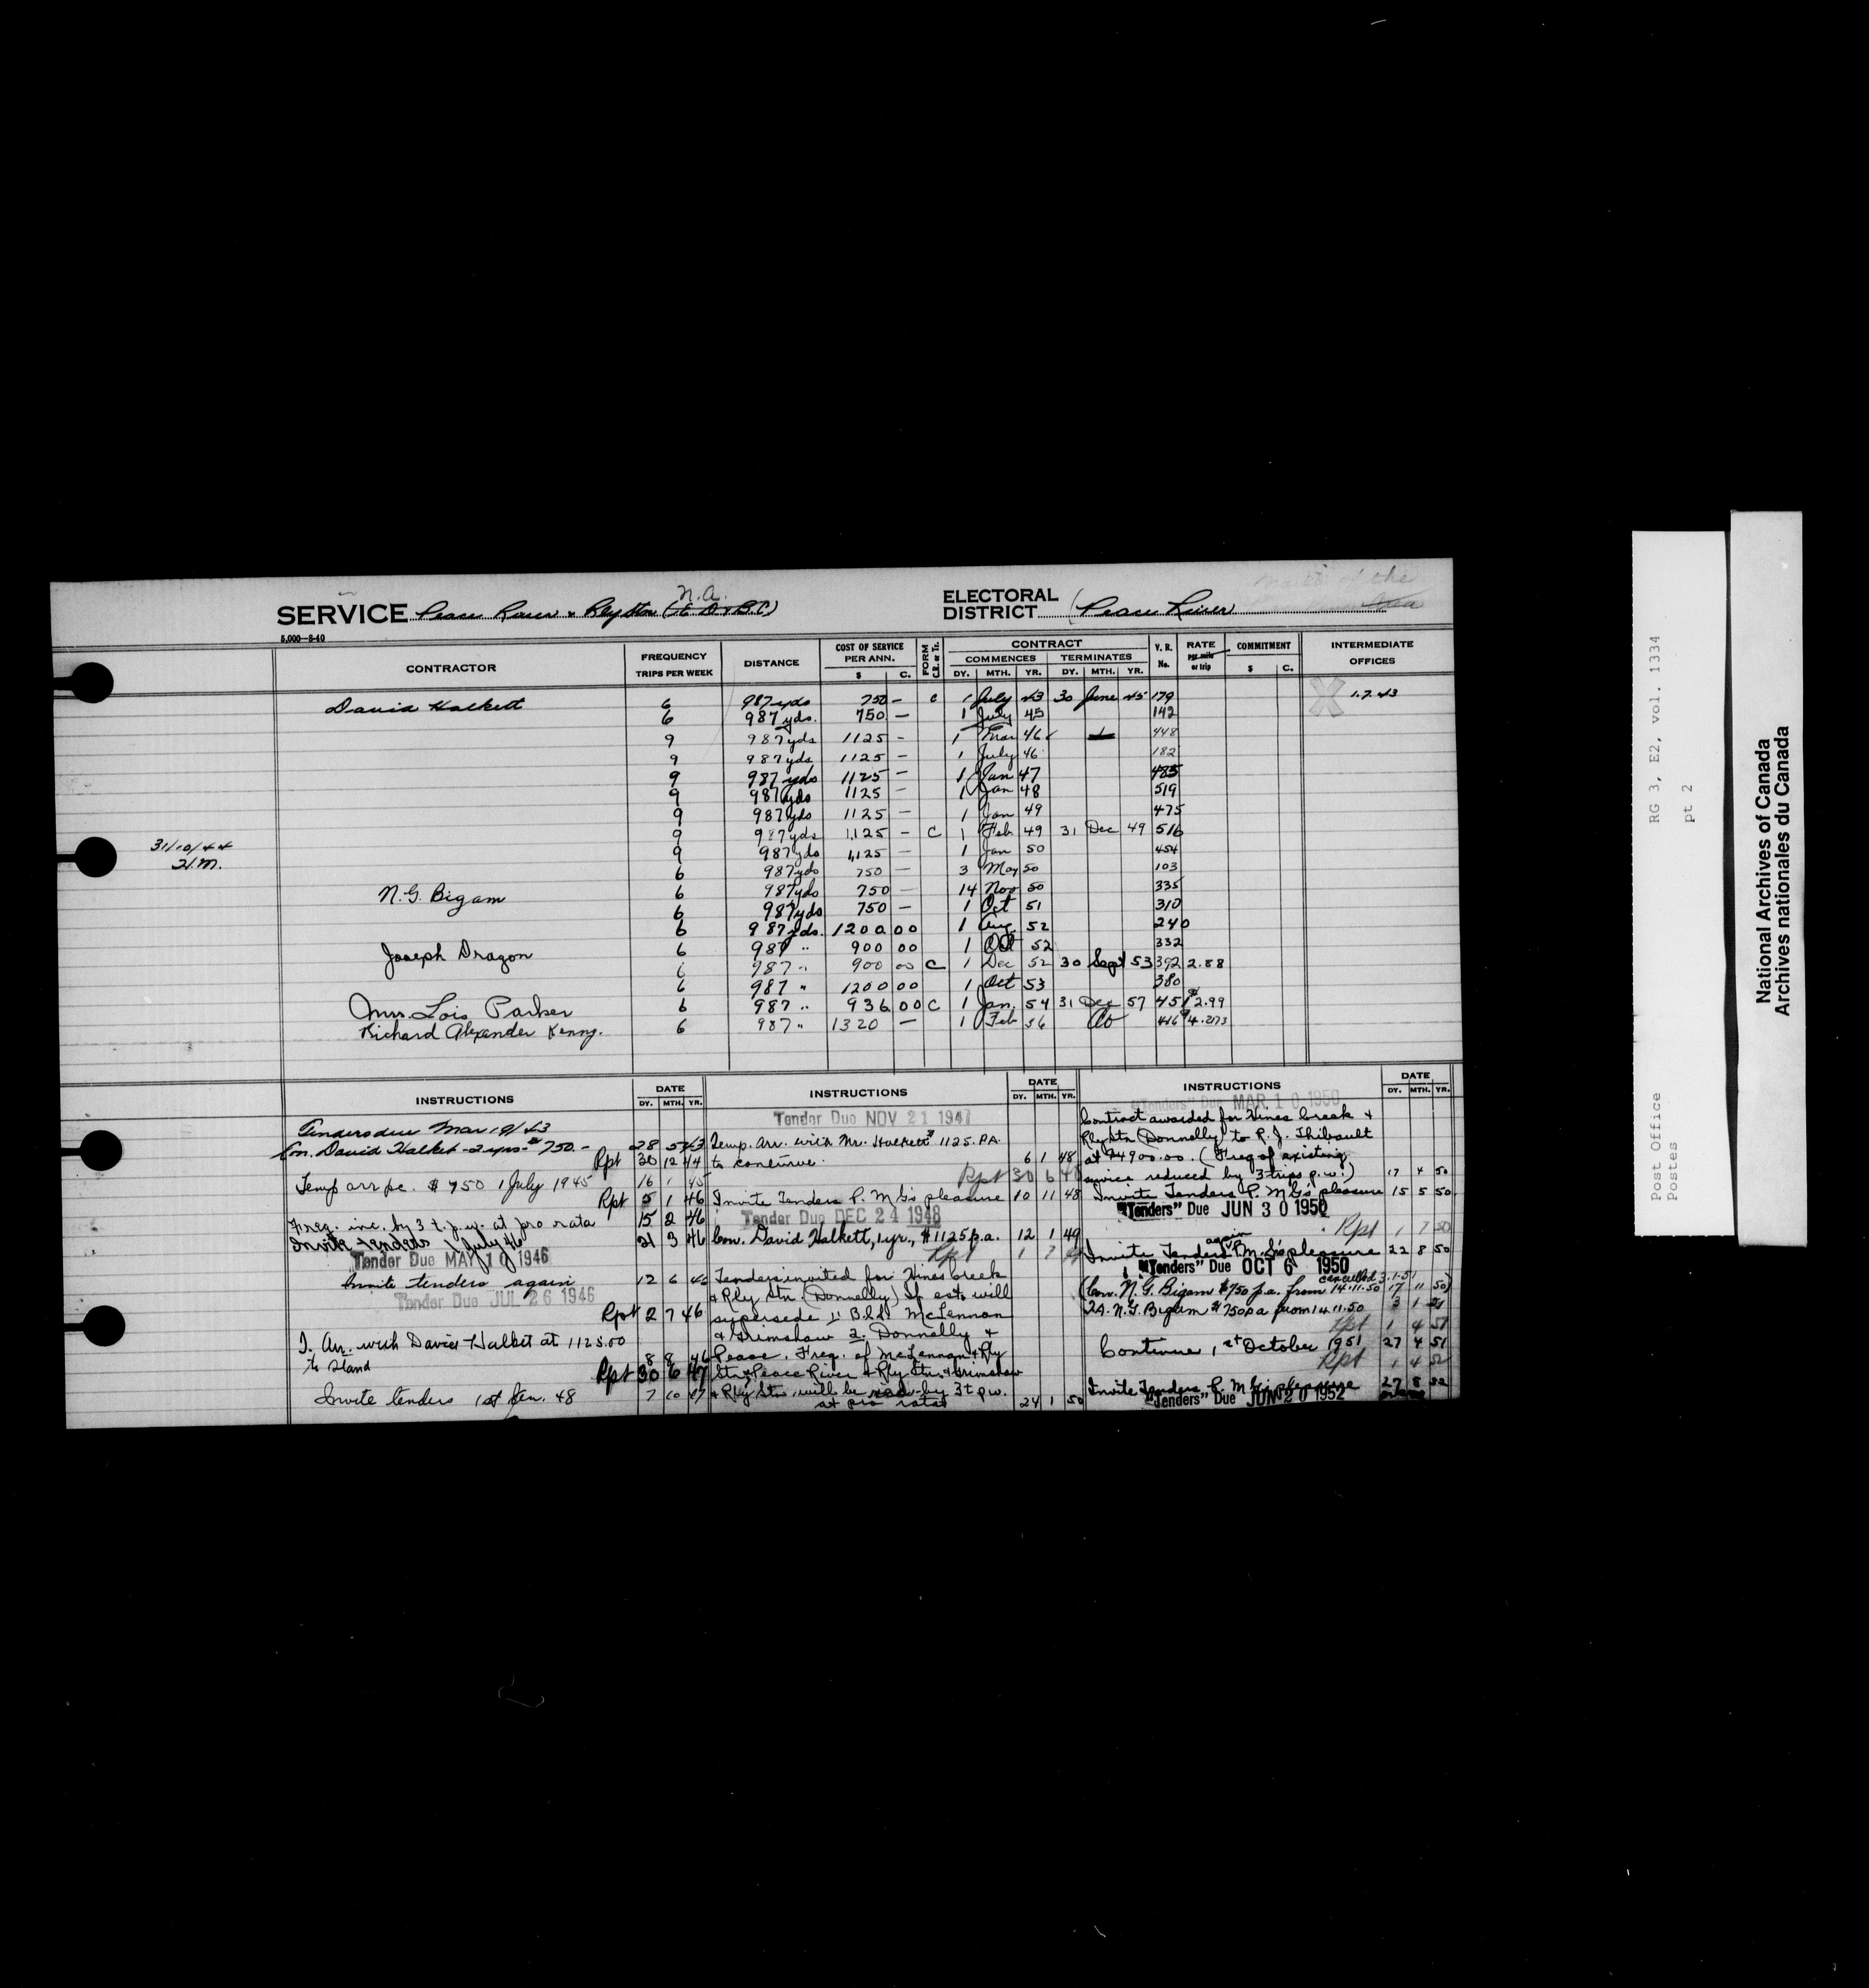 N.A.
SERVICE Peace River & Rly Stn (E.D. & B.C.)
ELECTORAL DISTRICT Peace River
5,000-8-40
CONTRACTOR FREQUENCY TRIPS PER WEEK DISTANCE COST OF SERVICE PER ANN. $ C. FORM C.R. or Tr. CONTRACT COMMENCES DY. MTH. YR. TERMINATES DY. MTH. YR. V. R. No. RATE per mile or trip COMMITMENT $ C. INTERMEDIATE OFFICES
David Halkett 6 987 yds 750 — C 1 July 43 30 June 45 179 1.7.43
6 987 yds. 750 — 1 July 45 142
9 987 yds 1125 — 1 Mar 46 448
9 987 yds 1125 — 1 July 46 182
9 987 yds 1125 — 1 Jan 47 485
9 987 yds 1125 — 1 Jan 48 519
9 987 yds 1125 — 1 Jan 49 475
9 987 yds 1,125 — C 1 Feb 49 31 Dec 49 516
31/10/44
9 987 yds 1,125 — 1 Jan 50 454
6 987 yds 750 — 3 May 50 103
N.G. Bigam 6 987 yds 750 — 14 Nov 50 335
6 987 yds 750 — 1 Oct 51 310
6 987 yds. 1200 00 1 Aug 52 240
Joseph Dragon 6 987 " 900 00 1 Oct 52 332
6 987 " 900 00 C 1 Dec 52 30 Sept 53 392 2.88
6 987 " 1200 00 1 Oct 53 380
Mrs. Lois Parker 6 987 " 936 00 C 1 Jan. 54 31 Dec 57 451 $2.99
Richard Alexander Kenny. 6 987 " 1320 — 1 Feb 56 416 $4.273
INSTRUCTIONS DATE DY. MTH. YR.
Tenders due Mar 19/43
Con. David Halket - 2 yrs - $750.- 28 5 43
Rpt 30 12 44
Temp arr pc. $750 1 July 1945 16 1 45
Rpt 5 1 46
Freq. inc. by 3 t.p.w. at pro rata 15 2 46
Invite tenders 1 July 46 21 3 46
Tender Due MAY 10 1946
Invite tenders again 12 6 46
Tender Due JUL 26 1946
Rpt 2 7 46
T. Arr. with David Halket at 1125.00
to stand 8 8 46
Rpt 30 6 47
Invite tenders 1st Jan. 48 7 10 47
INSTRUCTIONS DATE DY. MTH. YR.
Tender Due NOV 21 1947
Temp. Arr. with Mr. Halkett $1125. P.A.
to continue. 6 1 48
Rpt 30 6 48
Invite Tenders P.M.G's pleasure 10 11 48
Tender Due DEC 24 1948
Con. David Halkett, 1 yr., $1125 p.a. 12 1 49
Rpt 1 7 49
Tenders invited for Hines Creek
& Rly Stn. (Donnelly) If estb will
supersede 1. B.L.S. McLennan
& Grimshaw 2. Donnelly &
Peace. Freq. of McLennan & Rly
Stn & Peace River & Rly Stn & Grimshaw
& Rly Stn. will be red. by 3 t p w.
at pro rata 24 1 50
INSTRUCTIONS DATE DY. MTH. YR.
"Tenders" Due MAR 10 1950
Contract awarded for Hines Creek &
Rly Stn (Donnelly) to P.J. Thibault
at $4900.00. (Freq of existing
service reduced by 3 trips p.w.) 17 4 50
Invite Tenders P.M.G's pleasure 15 5 50
"Tenders" Due JUN 30 1950
Rpt 1 7 50
Invite Tenders again P.M.G's pleasure 22 8 50
"Tenders" Due OCT 6 1950
cancelled 3.1.51
(Con. N.G. Bigam $750 p.a. from 14.11.50 17 11 50)
T.A. N.G. Bigam $750 p.a from 14.11.50 3 1 51
Rpt 1 4 51
Continue 1st October 1951 27 4 51
Rpt 1 4 52
Invite Tenders P.M.G's pleasure 27 5 52
"Tenders" Due JUN 20 1952
RG 3, E2, vol. 1334
pt 2
Post Office
Postes
National Archives of Canada
Archives nationales du Canada